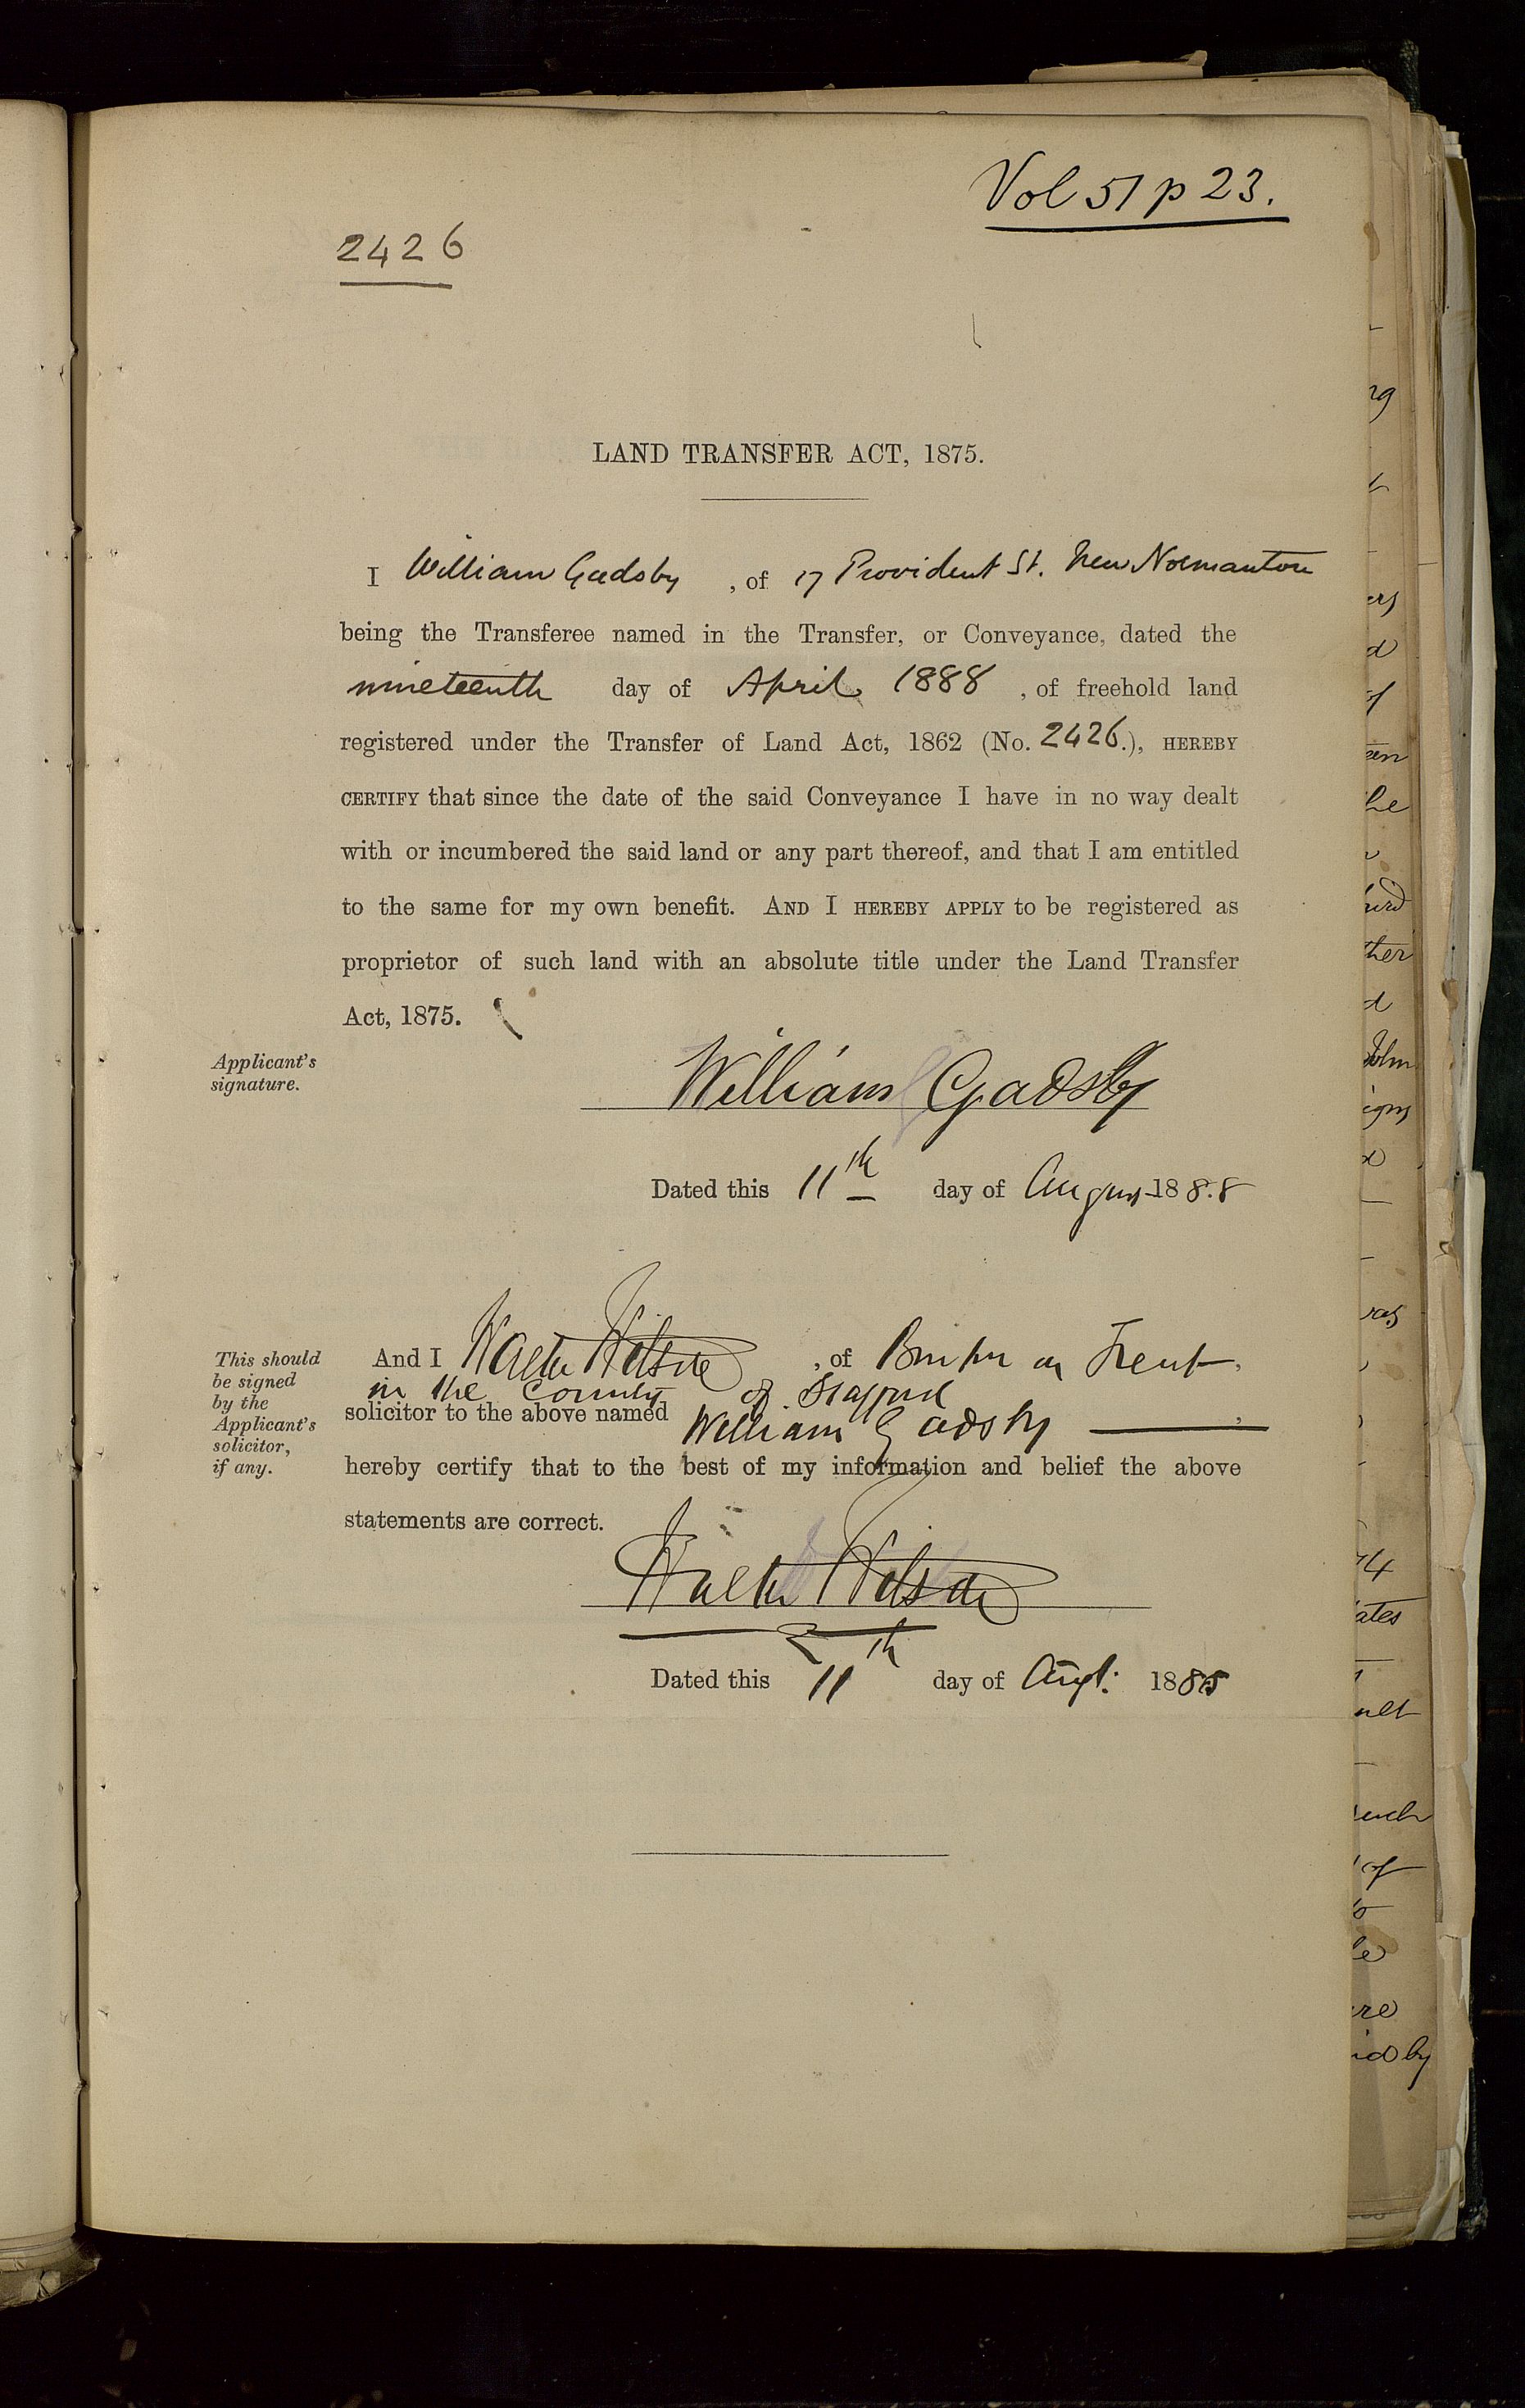 Vol 51 p 23.
2426
LAND TRANSFER ACT, 1875.
I William Gadsby, of 17 Provident St. New Normanton
being the Transferee named in the Transfer, or Conveyance, dated the
nineteenth day of April 1888, of freehold land
registered under the Transfer of Land Act, 1862 (No. 2426.), HEREBY
CERTIFY that since the date of the said Conveyance I have in no way dealt
with or incumbered the said land or any part thereof, and that I am entitled
to the same for my own benefit. AND I HEREBY APPLY to be registered as
proprietor of such land with an absolute title under the Land Transfer
Act, 1875.
Applicant's
signature.
William Gadsby
Dated this 11th day of August 188.8
This should
be signed
by the
Applicant's
solicitor,
if any.
And I Walter Wilson, of Burton on Trent,
in the County of Stafford
solicitor to the above named William Gadsby,
hereby certify that to the best of my information and belief the above
statements are correct.
Walter Wilson
Dated this 11th day of Augt. 1888
ng
ers
d
of
en
he
ther
d
John
igns
d
ates
uch
of
re
id by